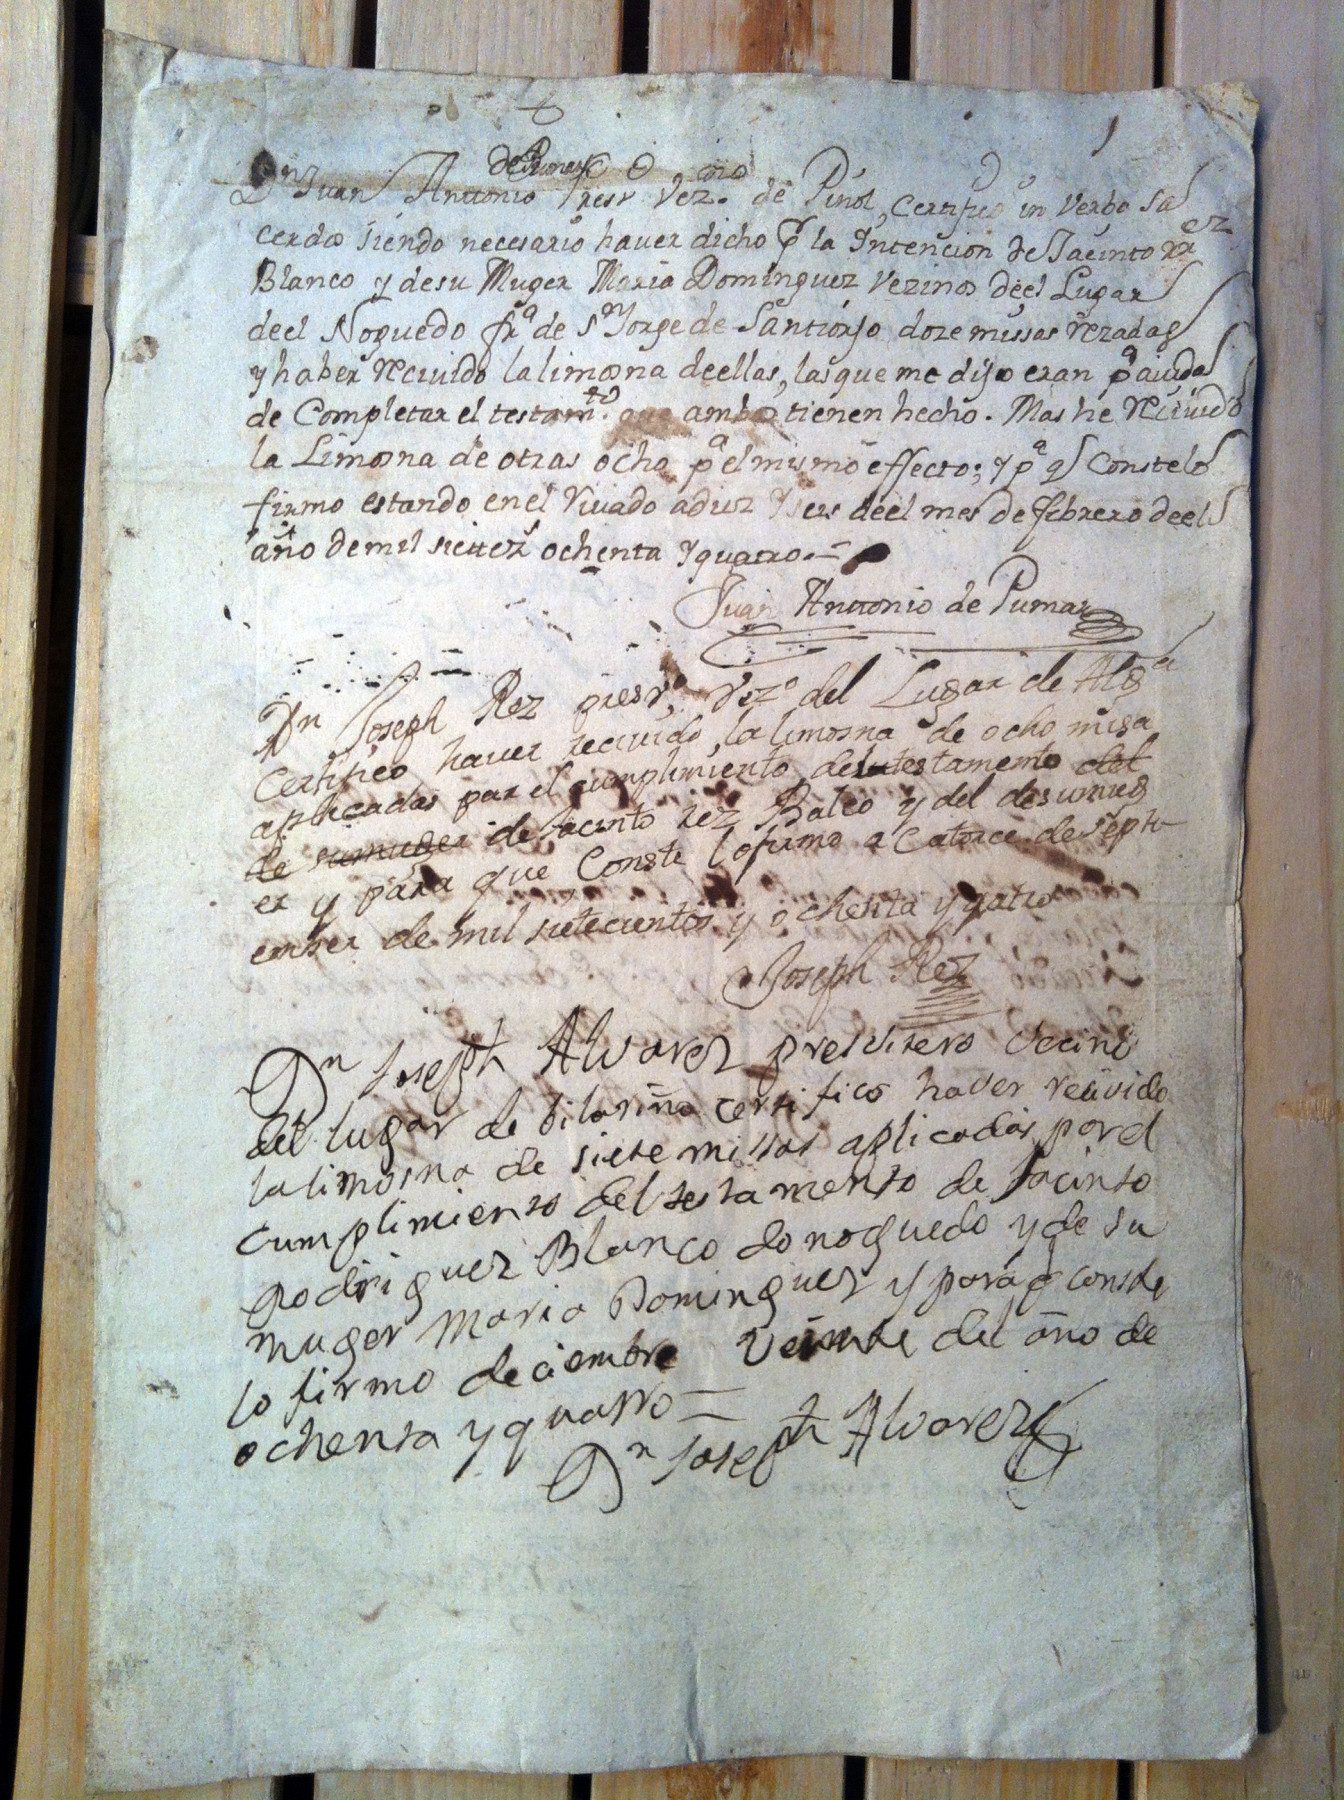 de Pumar
Dn Juan Antonio Presro Vezno de Piñol, Certifico in verbo Sa
cerdos siendo necesario haver dicho pr la Intencion de Jacinto Rrez
Blanco y de su Muger Maria Dominguez Vezinos deel Lugar
deel Noguedo fra de Sn Jorge de Santiorjo doze missas rezadas
y haber recivido la limosna deellas, las que me dijo eran pa aiuda
de Completar el testamto que ambos tienen hecho. Mas he recivido
la Limosna de otras ocho pa el mismo effecto; y pa q Conste lo
firmo estando en el Viuado a diez y seis deel mes de febrero deel
año de mil settezs ochenta y quatro.=
Juan Antonio de Pumar
Dn Joseph Rez presvo, Vezo del Lugar de Alga
Certifico haver recivido la limosna de ocho misa
aplicadas par el cumplimiento del testamento del
de su muger de Jacinto rez Balco y del de su mug
er y para que Conste lo firmo a Catorce de septi
ember de mil sietecientos y ochenta y qatro
Joseph Rez
Dn Joseph Alvarez presvitero vecino
del lugar de bilariño certifico haver recivido
la limosna de siete missas aplicadas por el
cumplimiento del testamento de Jacinto
Rodriguez Blanco do noguedo y de su
muger Maria Dominguez y para q conste
lo firmo deciembre veinte del año de
ochenta y quatro =
Dn Joseph Alvarez